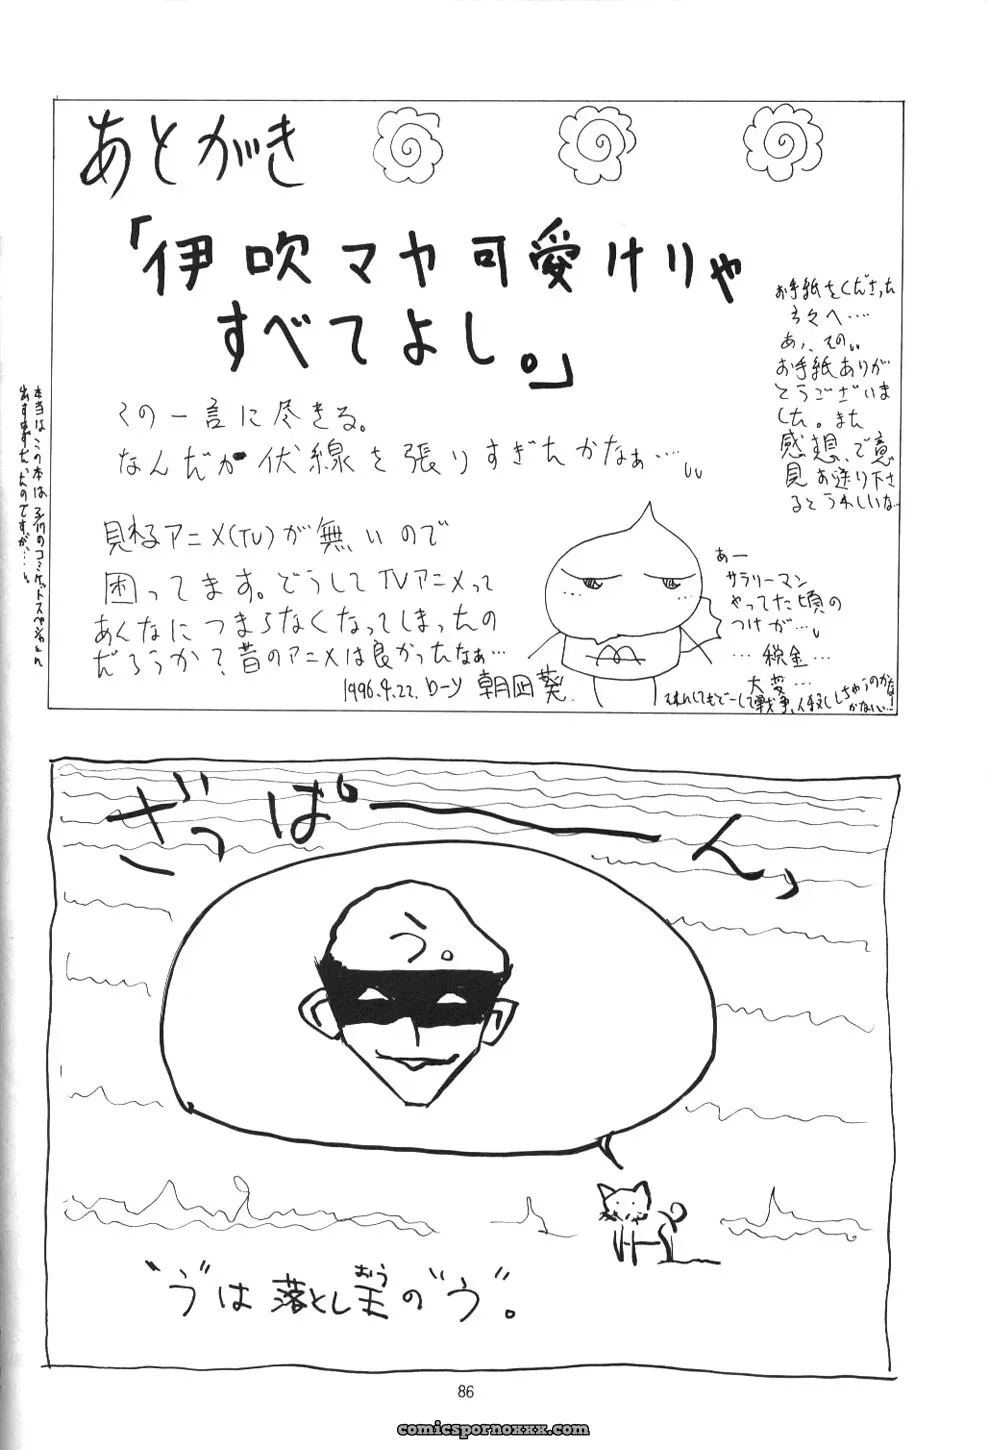 あとがき
「伊吹マヤ可愛けりゃ
すべてよし。」
この一言に尽きる。
なんだか伏線を張りすぎたかなぁ…
見れるアニメ(TV)が無いので
困ってます。どうしてTVアニメって
あんなにつまらなくなってしまったの
だろうか?昔のアニメは良かったなぁ…
1996.4.22. ローソ 朝凪葵.
お手紙をくださった
方々へ…
あ、その、
お手紙ありが
とうございま
した。また
感想、ご意
見お送り下さ
るとうれしいな
あー
サラリーマン
やってた頃の
つけが…
…税金…
大変…
本当はこの本は3/17のコミケットスペシャルに
出すはずだったのですが…
ざっぱーーん」
う。
"う"は落とし王の"う"。
おう
86
comicspornoxxx.com